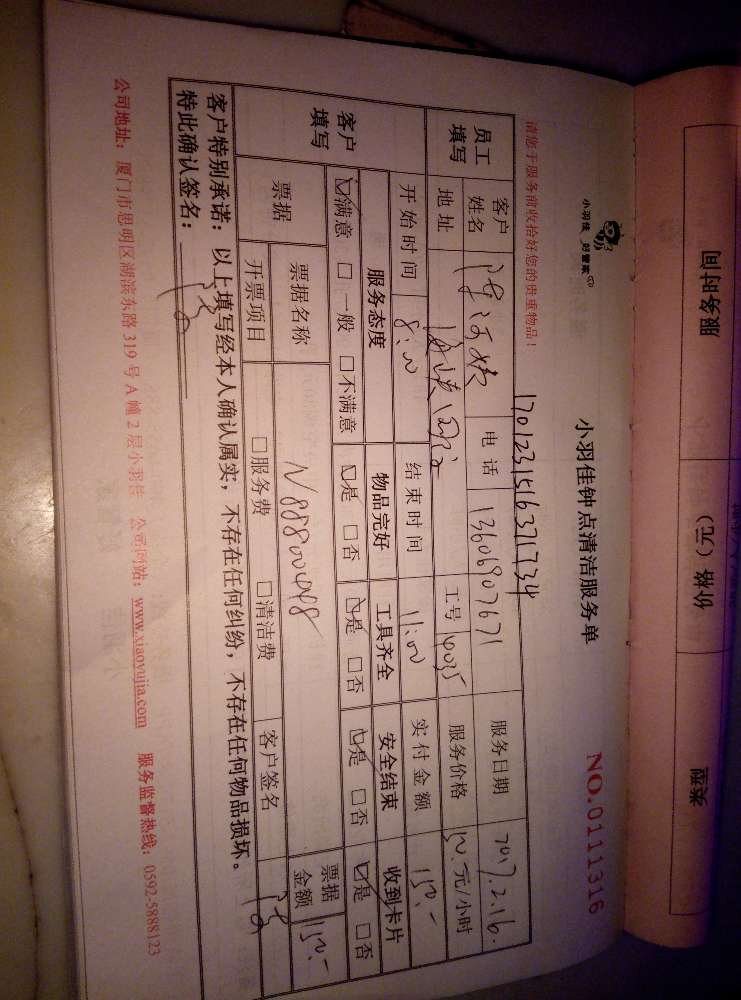 服务时间 价格(元) 来源
小羽佳 好管家
小羽佳钟点清洁服务单
NO.0111316
请您于服务前收拾好您的贵重物品!
17012315163717734
员工填写 客户姓名 电话 13606907671 服务日期 2017.2.16.
地址 工号 服务价格 50.元/小时
客户填写 开始时间 8:00 结束时间 11:00 实付金额 150.-
服务态度 物品完好 工具齐全 安全结束 收到卡片
☑满意 □一般 □不满意 ☑是 □否 ☑是 □否 ☑是 □否 ☑是 □否
票据 票据名称 票据金额 150.-
开票项目 □服务费 □清洁费 客户签名
客户特别承诺:以上填写经本人确认属实,不存在任何纠纷,不存在任何物品损坏。
特此确认签名:
公司地址:厦门市思明区湖滨东路319号A幢2层小羽佳 公司网站:www.xiaoyujia.com 服务监督热线:0592-5888123